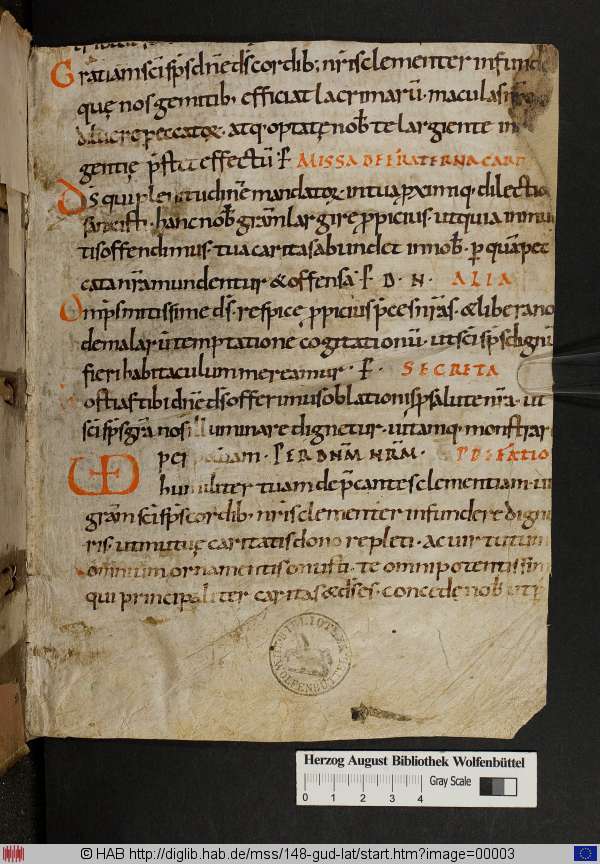 Gratiam sci sps dne ds cordib; nris clementer infunde
quę nos gemitib; efficiat lacrimarū maculas nrorū
diluere peccatoꝝ · atq; optatę nob te largiente in
gentię effectū · P MISSA DE FRATERNA CARI
Ds qui plenitudinē mandatoꝝ in tua & proximiq; dilectio
hanc nob grām largire propicius · ut quia in mul
tis offendimus · tua caritas abundet in nob · per quā pec
cata nrā mundentur & offensa P D · N · ALIA
Omps mitissime ds · respice propicius preces nrās · & libera
de malarū temptatione cogitationū · ut sci sps dignū
fieri habitaculum mereamur · P · SECRETA
ostias tibi dne ds offerimus oblationis p salute nrā · ut
sci sps grā nos illuminare dignetur · uitamq; monstrare
p ei PER DNM NRM · PREFATIO
VD humiliter tuam deprecantes clementiam · ut
grām sci sps cordib; nris clementer infundere digne
ris · ut mutuę caritatis dono repleti · ac uirtutum
omnium ornamentis onusti · te omnipotentissim
qui principaliter caritas & ds es · concede nob ut
BIBLIOTHEK WOLFENBÜTTEL
Herzog August Bibliothek Wolfenbüttel
Gray Scale
0 1 2 3 4
© HAB http://diglib.hab.de/mss/148-gud-lat/start.htm?image=00003